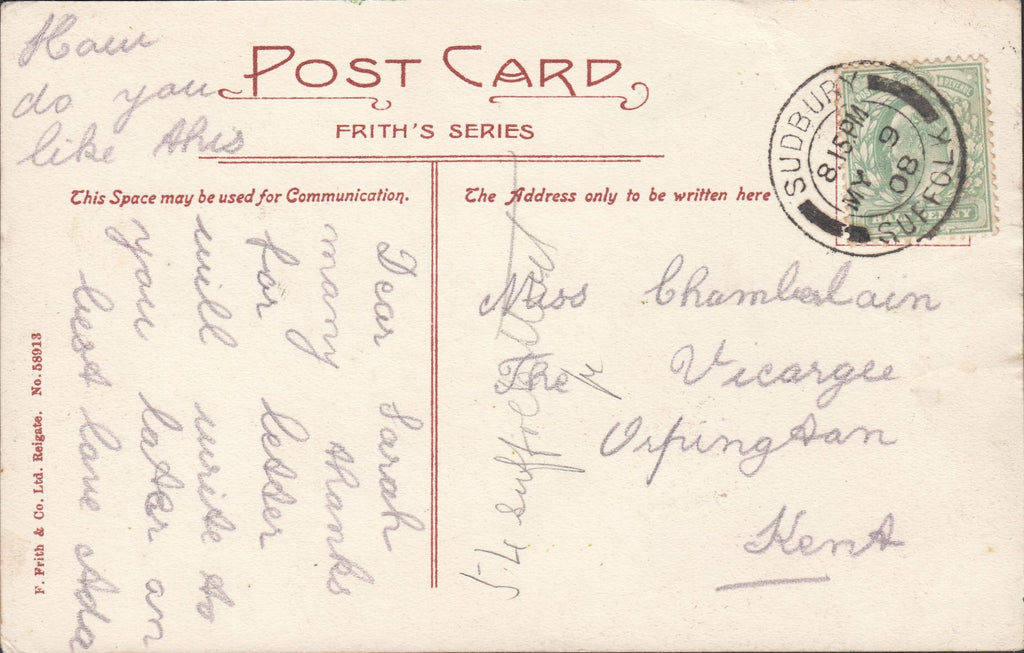 How
do you
like this
POST CARD
FRITH'S SERIES
This Space may be used for Communication.
The Address only to be written here
SUDBURY
8.15PM
MY 9
08
SUFFOLK
HALFPENNY
Dear Sarah
many thanks
for letter
will write to
you later an
best love Ada
Miss Chambalain
The Vicargee
Orpington
Kent
54 Suffolk
F. Frith & Co. Ltd. Reigate. No. 58913